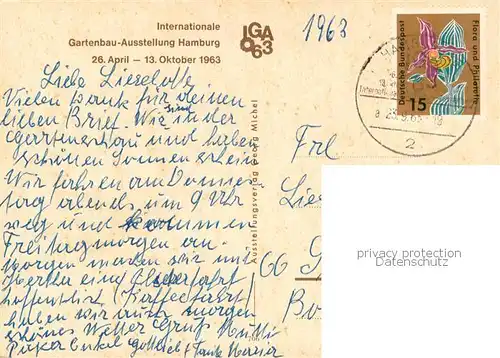 Internationale
Gartenbau-Ausstellung Hamburg
26. April — 13. Oktober 1963
IGA
63
1963
Deutsche Bundespost
Flora und Philatelie
15
Internation
a 23.9.63-18
2
Liebe Lieselotte
Vielen Dank für deinen
lieben Brief. Wir sind in der
Gartenschau und haben
schönen Sonnenschein
Wir fahren am Donners
tag abends um 9 Uhr
weg und kommen
Freitagmorgen an.
Morgen machen wir mit
Bertha eine Alsterfahrt
hoffentlich (Kaffeefahrt)
haben wir auch morgen
schönes Wetter Gruß Mutti
Onkel Gottlieb Tante
Ausstellungsverlag Georg Michel
Frl
Lies
66
Bo
privacy protection
Datenschutz